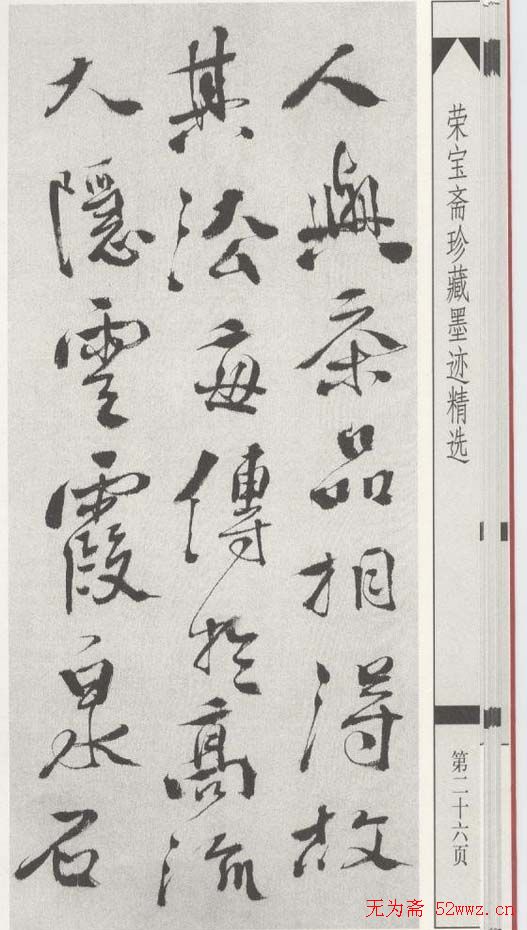 人與茶品相得故
其法每傳於高流
大隱雲霞泉石
荣宝斋珍藏墨迹精选
第二十六页
无为斋 52wwz.cn